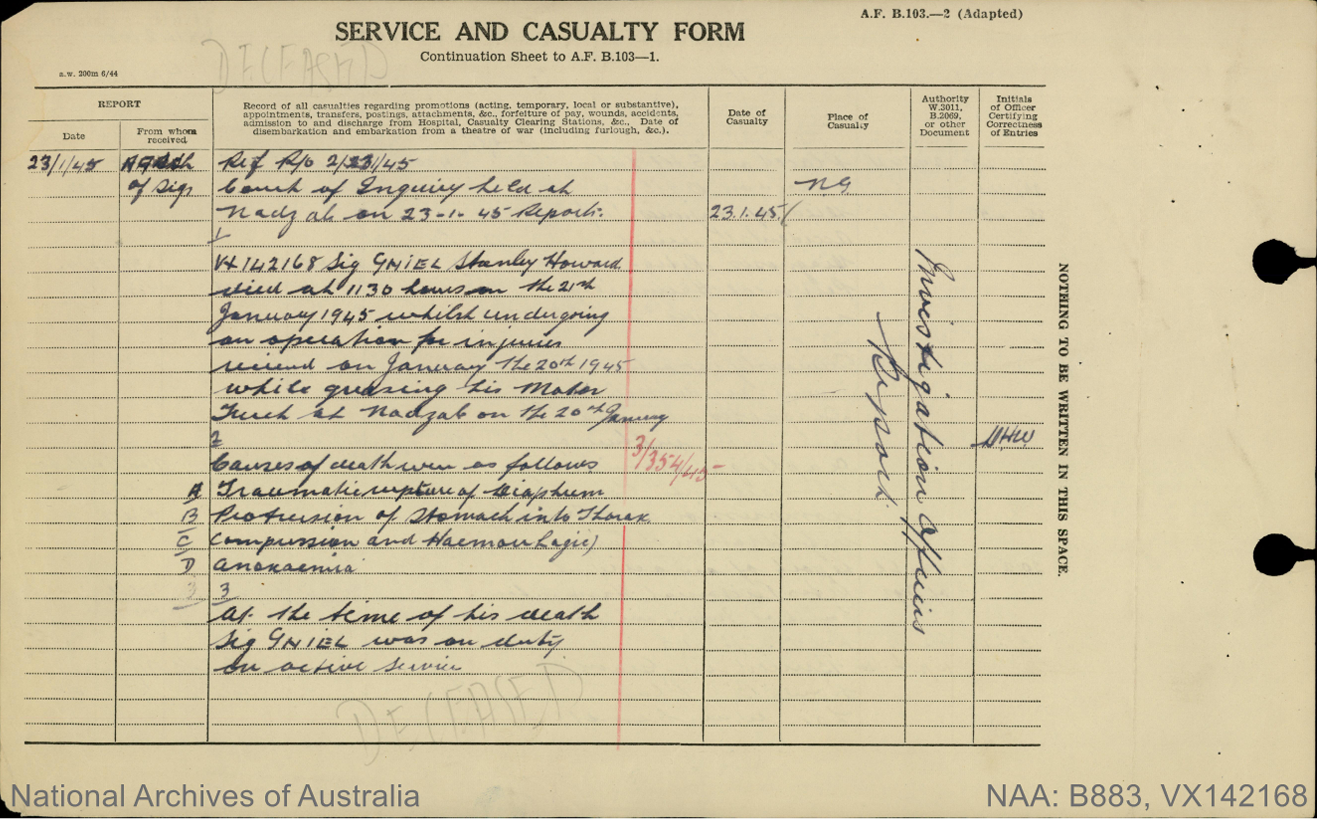 A.F. B.103.—2 (Adapted)
SERVICE AND CASUALTY FORM
Continuation Sheet to A.F. B.103—1.
DECEASED
a.w. 200m 6/44
REPORT
Date
From whom received
Record of all casualties regarding promotions (acting, temporary, local or substantive),
appointments, transfers, postings, attachments, &c., forfeiture of pay, wounds, accidents,
admission to and discharge from Hospital, Casualty Clearing Stations, &c., Date of
disembarkation and embarkation from a theatre of war (including furlough, &c.).
Date of Casualty
Place of Casualty
Authority W.3011, B.2069, or other Document
Initials of Officer Certifying Correctness of Entries
23/1/45 Ref R/o 2/23/1/45
of Sigs Court of Enquiry held at NG
Nadzab on 23-1-45 Reports. 23.1.45
1
VX142168 Sig GNIEL Stanley Howard
died at 1130 hours on the 21st
January 1945 whilst undergoing
an operation for injuries
received on January the 20th 1945
while greasing his Motor
Truck at Nadzab on the 20th January
2
Causes of death were as follows 3/354/45
A Traumatic rupture of Diaphrum
B Protrusion of Stomach into Thorax
C Compression and Haemorrhagic)
D Anoxaemia
3 3
At the time of his death
Sig GNIEL was on duty
on active service
DECEASED
Investigation Officers
Report.
NOTHING TO BE WRITTEN IN THIS SPACE.
National Archives of Australia
NAA: B883, VX142168